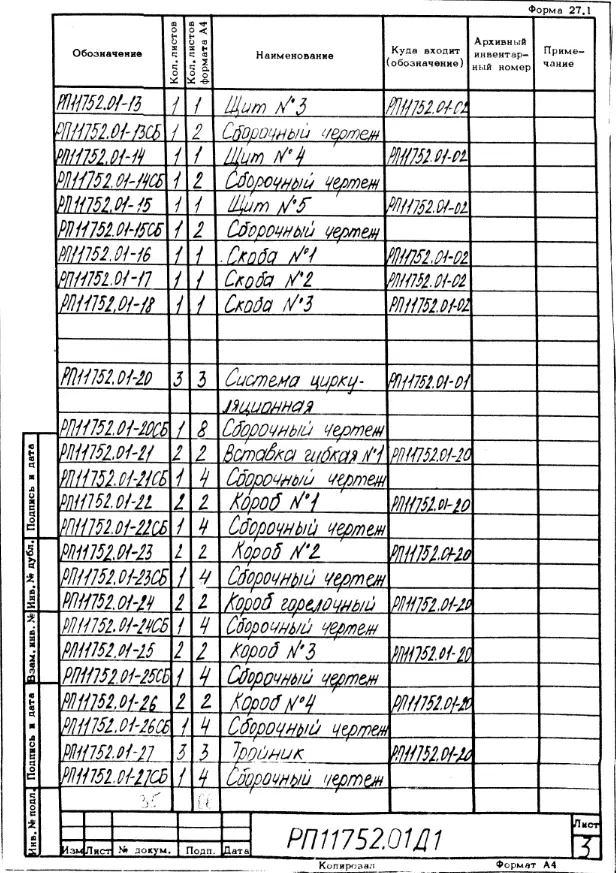 Форма 27.1
Обозначение Кол. листов Кол. листов формата А4 Наименование Куда входит (обозначение) Архивный инвентарный номер Примечание
РП11752.01-13 1 1 Щит №3 РП11752.01-02
РП11752.01-13СБ 1 2 Сборочный чертеж
РП11752.01-14 1 1 Щит №4 РП11752.01-02
РП11752.01-14СБ 1 2 Сборочный чертеж
РП11752.01-15 1 1 Щит №5 РП11752.01-02
РП11752.01-15СБ 1 2 Сборочный чертеж
РП11752.01-16 1 1 Скоба №1 РП11752.01-02
РП11752.01-17 1 1 Скоба №2 РП11752.01-02
РП11752.01-18 1 1 Скоба №3 РП11752.01-02
РП11752.01-20 3 3 Система цирку-
РП11752.01-01
ляционная
РП11752.01-20СБ 1 8 Сборочный чертеж
РП11752.01-21 2 2 Вставка гибкая №1 РП11752.01-20
РП11752.01-21СБ 1 4 Сборочный чертеж
РП11752.01-22 2 2 Короб №1 РП11752.01-20
РП11752.01-22СБ 1 4 Сборочный чертеж
РП11752.01-23 2 2 Короб №2 РП11752.01-20
РП11752.01-23СБ 1 4 Сборочный чертеж
РП11752.01-24 2 2 Короб горелочный РП11752.01-20
РП11752.01-24СБ 1 4 Сборочный чертеж
РП11752.01-25 2 2 Короб №3 РП11752.01-20
РП11752.01-25СБ 1 4 Сборочный чертеж
РП11752.01-26 2 2 Короб №4 РП11752.01-20
РП11752.01-26СБ 1 4 Сборочный чертеж
РП11752.01-27 3 3 Тройник РП11752.01-20
РП11752.01-27СБ 1 4 Сборочный чертеж
Инв. № подл. Подпись и дата Взам. инв. № Инв. № дубл. Подпись и дата
Изм Лист № докум. Подп. Дата
РП11752.01Д1
Лист
3
Копировал Формат А4